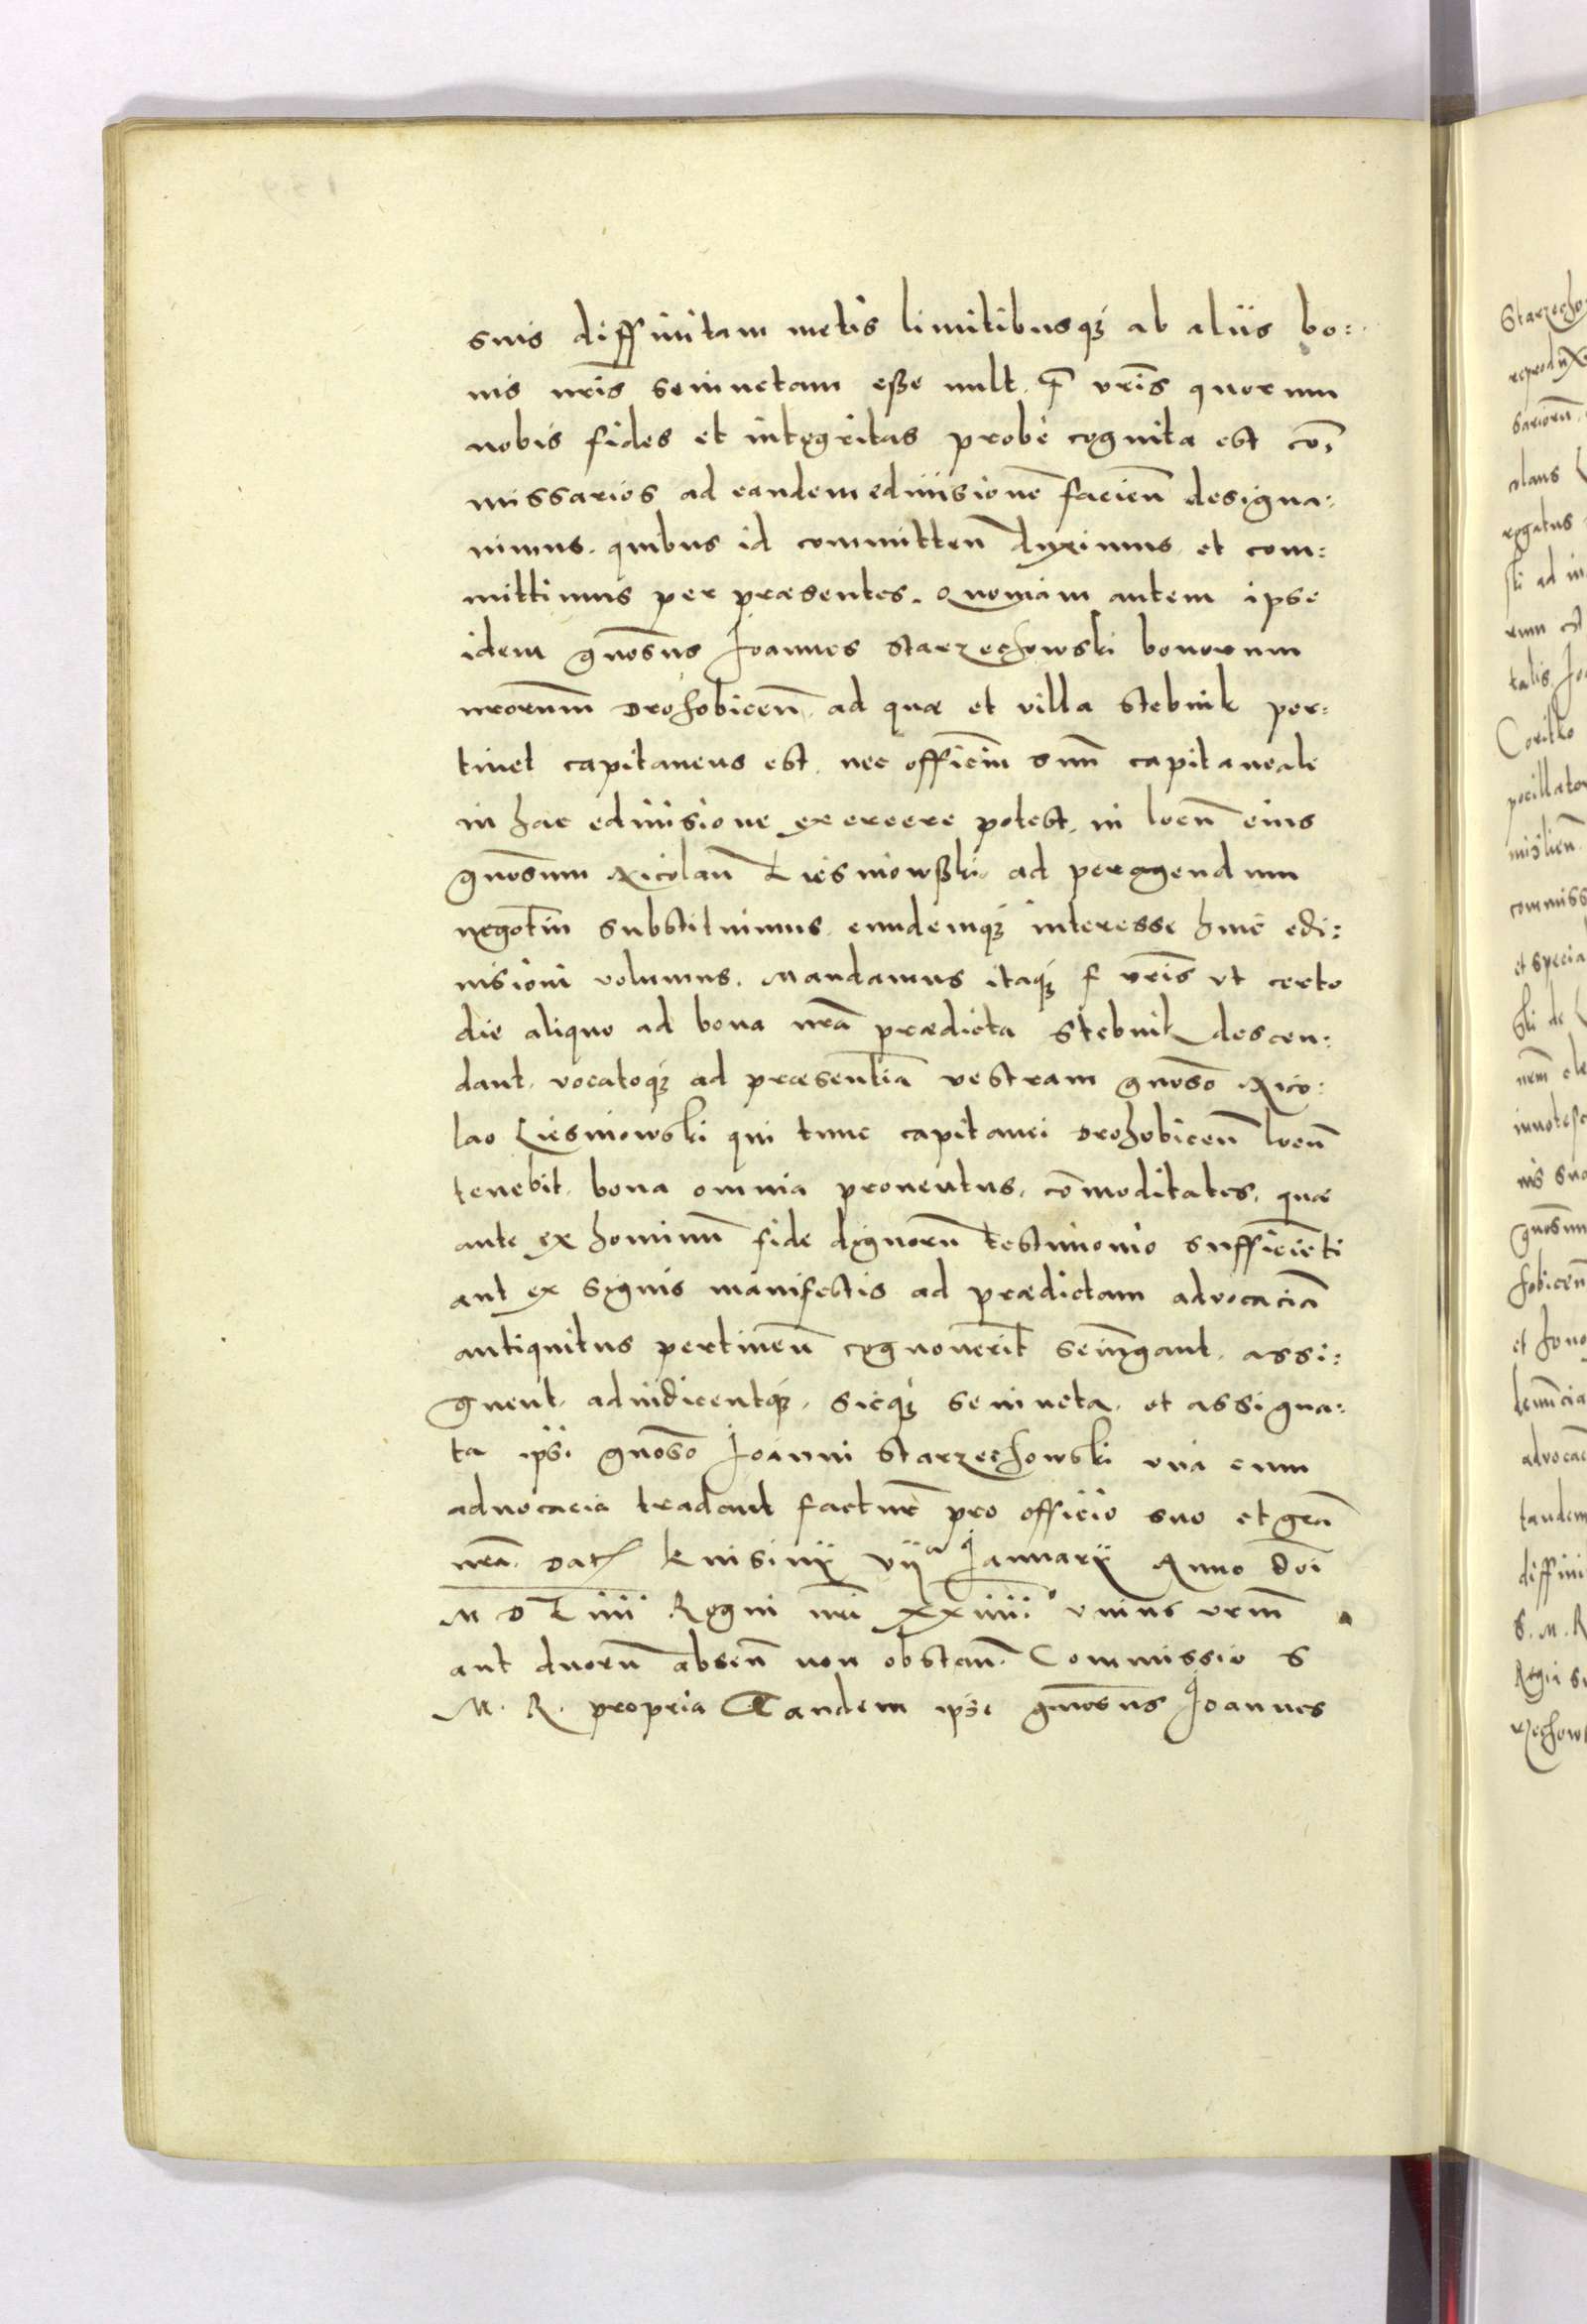 suis diffinitam metis limitibusq₃ ab aliis bo:
nis nr̄is seiunctam esse uult. f. vr̄is quorum
nobis fides et integritas probè cognita est com̄
missarios ad eandem ediuisionē facien̄ designa:
uimus. quibus id committen̄ duximus et com:
mittimus per præsentes. Quoniam autem ipse
idem gn̄osus Joannes Starzechowski bonorum
nr̄orum Drohobicen̄. ad quæ et villa Stebnik per:
tinet capitaneus est. nec officiū suū capitaneale
in hac ediuisione exercere potest. in locū eius
gn̄osum Nicolaū Liesniowski ad peragendum
negotiū substituimus. eundemq₃ interesse huic edi:
uisioni volumus. Mandamus itaq₃ f. vr̄is vt certo
die aliquo ad bona nr̄a prædicta Stebnik descen:
dant. vocatoq₃ ad præsentiā vestram gn̄oso Nico:
lao Liesniowski qui tunc capitanei Drohobicen̄ locū
tenebit. bona omnia prouentus, cōmoditates, quæ
aute ex hominū fide dignorū testimonio sufficiēti
aut ex signis manifestis ad prædictam advocaciā
antiquitus pertinen̄ cognouerit seiūgant. assi:
gnent. adiudicentq₃. sicq₃ seiuncta. et assigna:
ta ipsi gn̄oso Joanni Starzechowski vna cum
aduocacia tradant facturę pro officio suo et grā
nr̄a. Dat. Knisinÿ vijᵃ Januarÿ Anno Dn̄i
M D Liiii Regni nr̄i xxiiii° vnius vr̄m
aut duorū absen̄ non obstan̄. Commissio S
M. R. propria Tandem ipse gn̄osus Joannes
Starzecho
reprodux
sariorū
olaus
rogatus
ski ad in
rum
talis Jo
Coritko
pocillato
mislien̄
commiss
et specia
ski de
nem̄
innotesc
nis sua
gn̄osum
hobicen̄
et hono
denūcia
advocac
tandem
diffini
S. M. R
Regia
rzechow